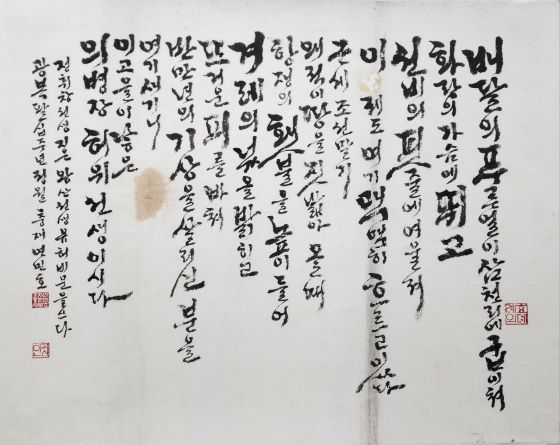 배달의 푸른 얼이 삼천리에 굽이쳐
화랑의 가슴에 뛰고
선비의 핏줄에 여울져
이제도 여기 맥맥히 흐르고 있다
근세 조선 말기
왜적이 땅을 짓밟아 올 때
항쟁의 횃불을 높이 들어
겨레의 넋을 밝히고
뜨거운 피를 바쳐
반만년의 기상을 살리신 분을
여기 새기니
이 고을이 낳은
의병장 허위 선생이시다
선생 짓고 왕산 선생 유허비문을 쓰다
광복 팔십주년 정월